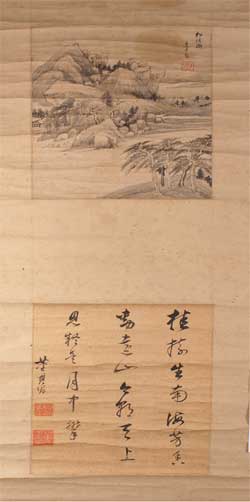 桂樹生南海芳香
隔遠山今朝天上
見疑是月中攀
董其昌